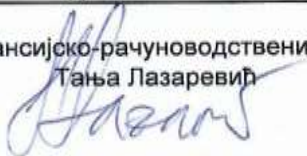 ансијско-рачуноводствени
Тања Лазаревић